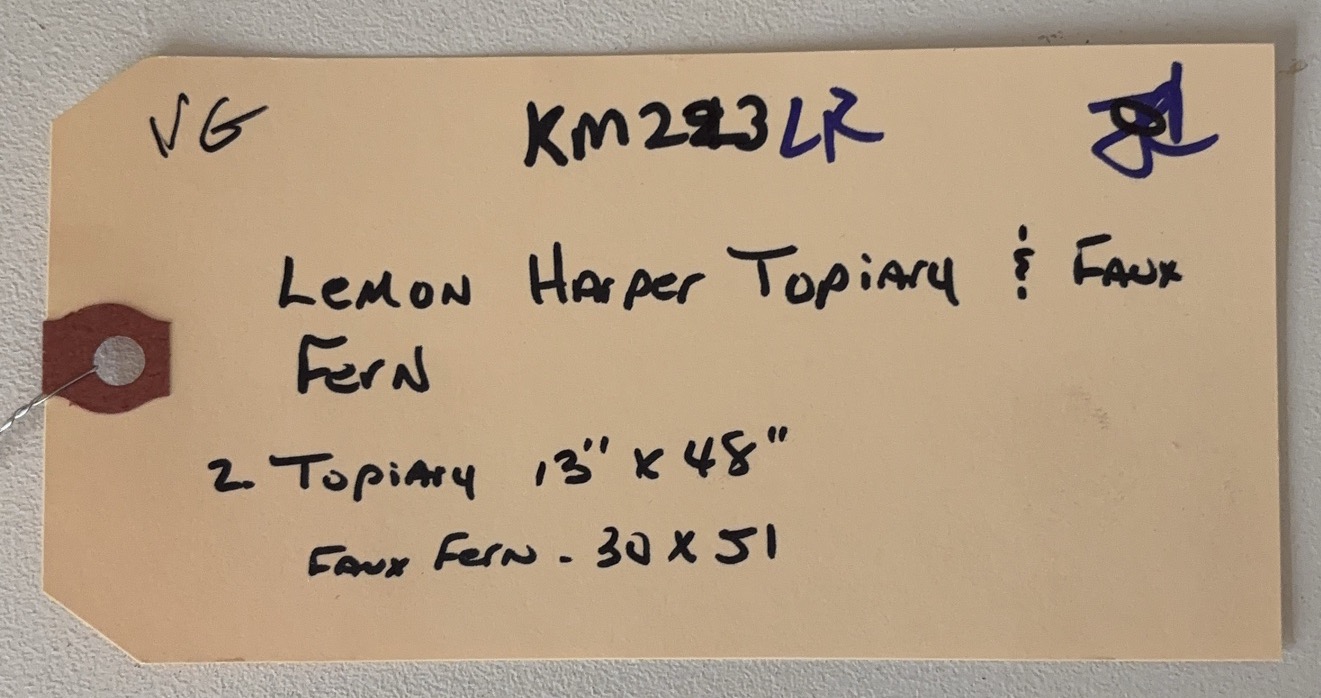 VG
LR
Lemon Harper Topiary & Faux
Fern
2. Topiary 13" x 48"
Faux Fern - 30 x 51